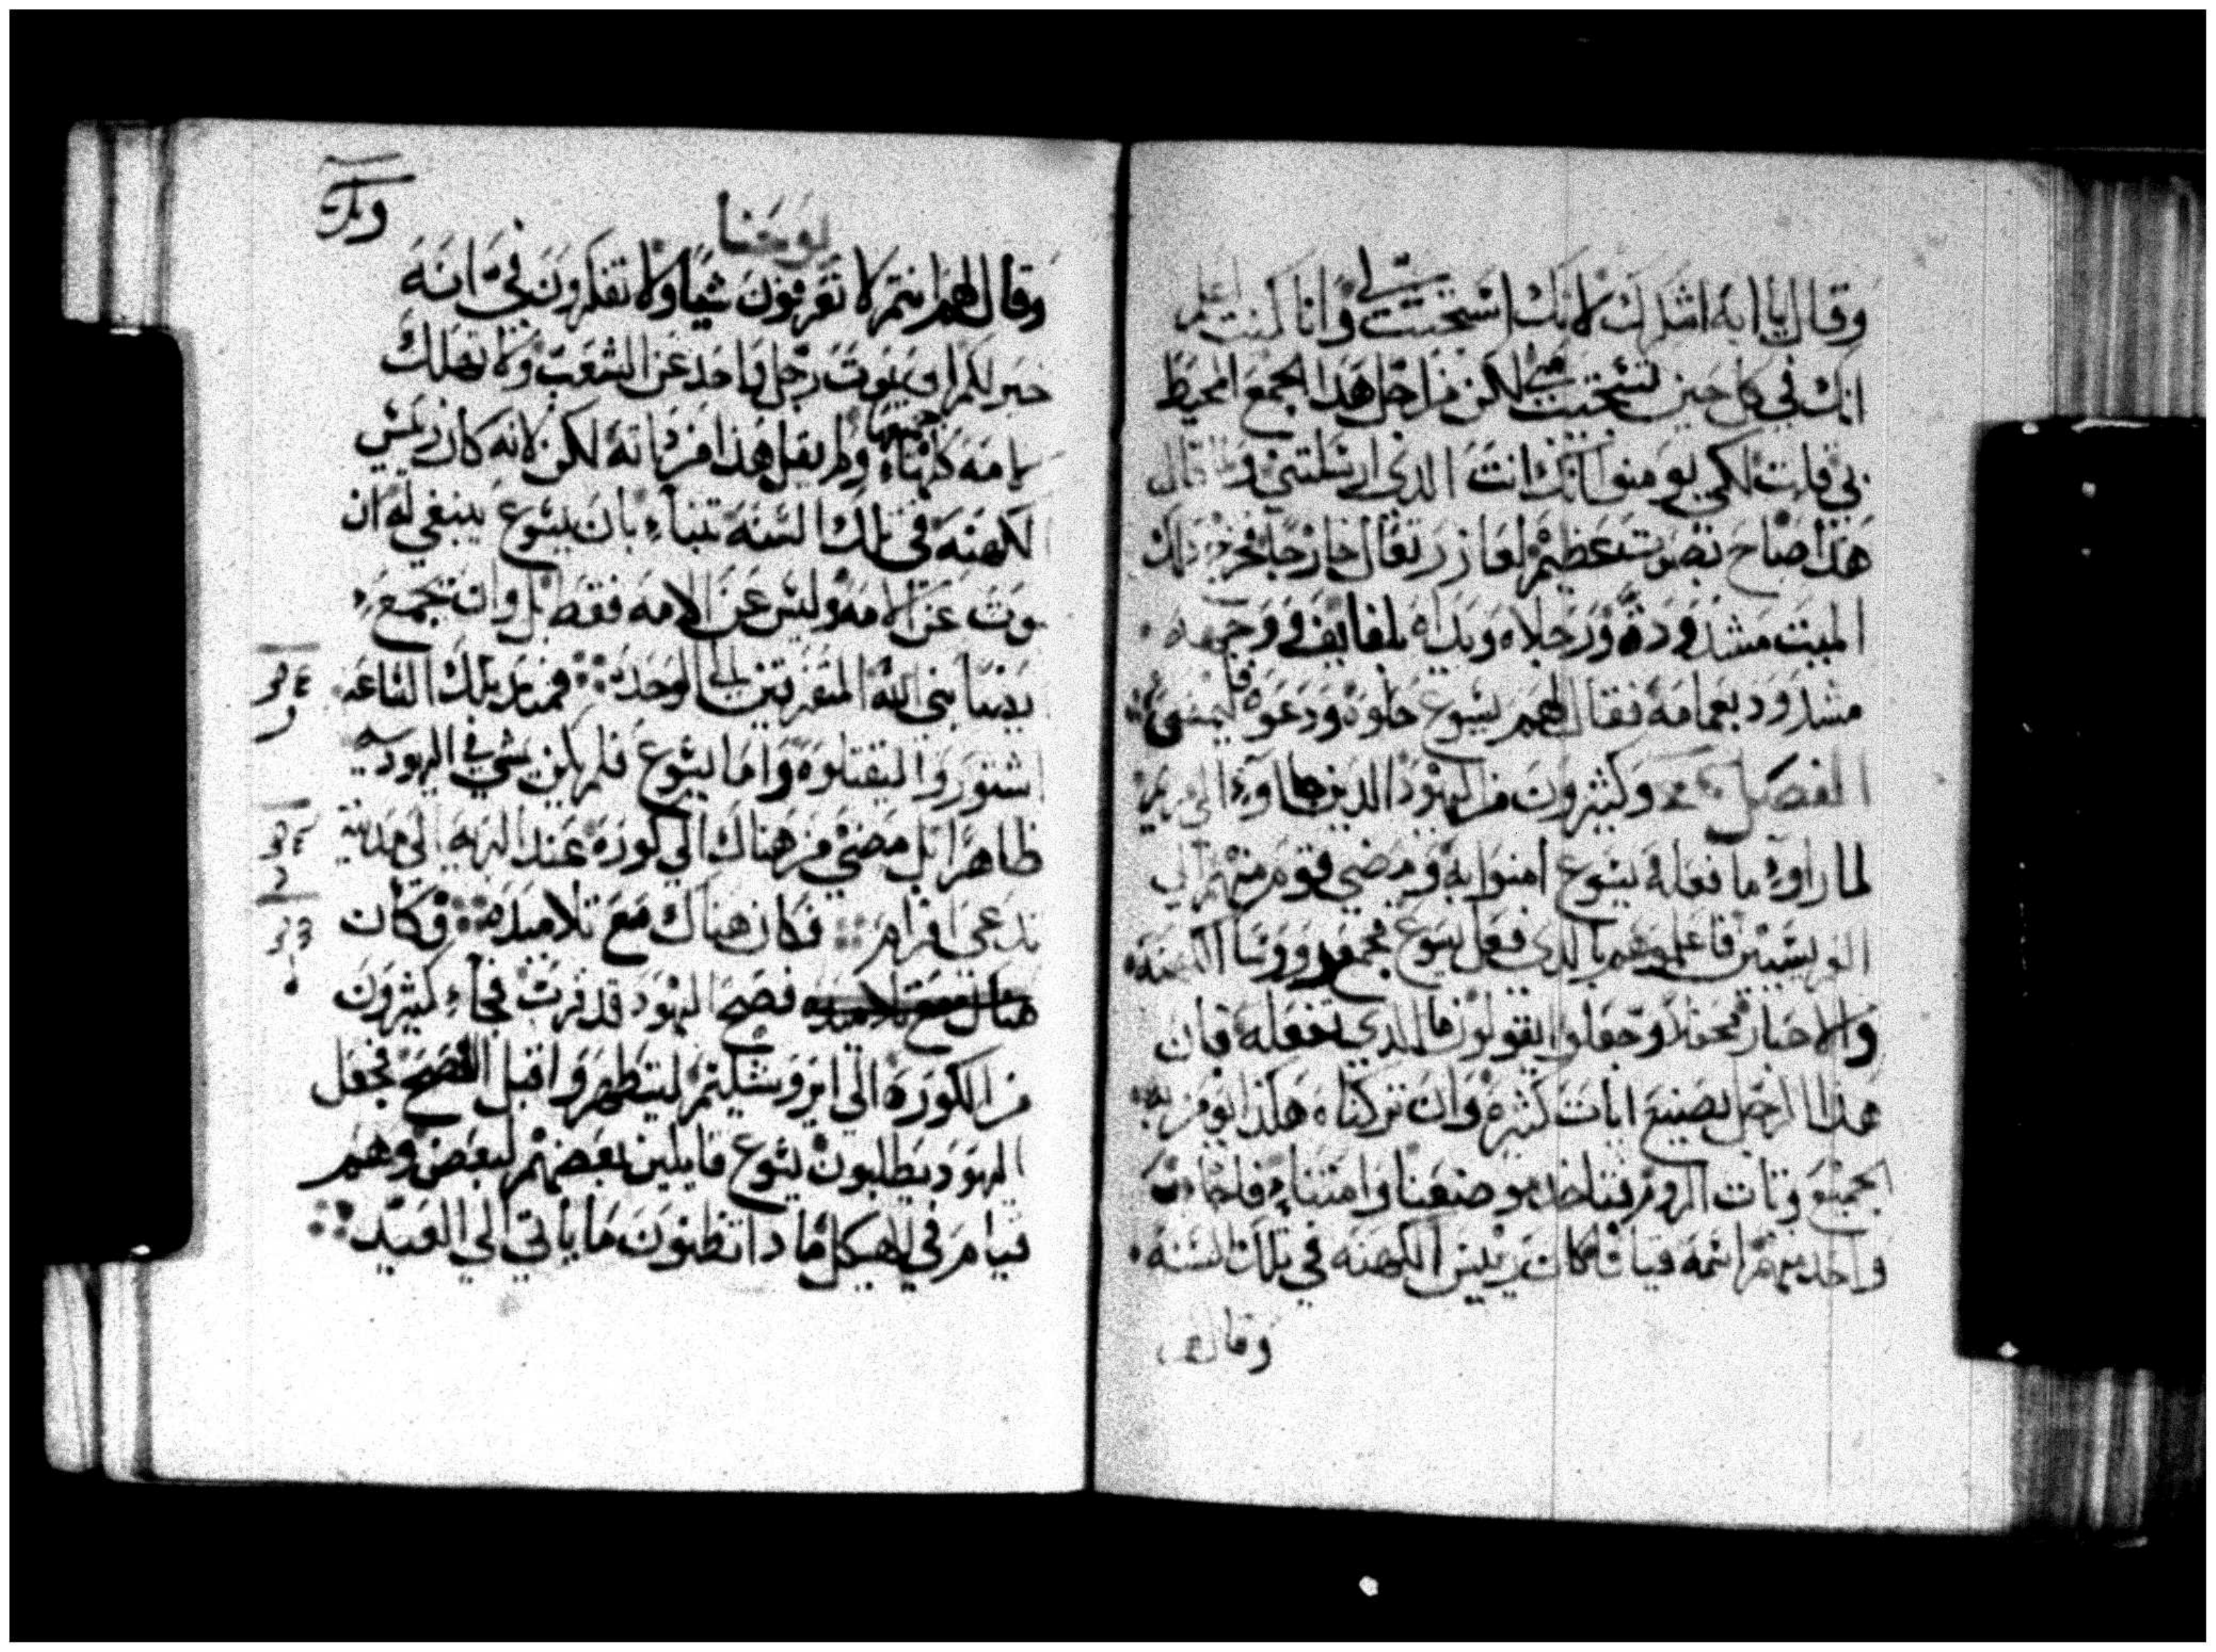 وقال يا ابه اشكرك لانك استجبت لي وانا كنت اعلم
انك في كل حين تستجيب لي لكن من اجل هذا الجمع المحيط
بي قلت لكي يومنوا انك انت الذي ارسلتني ولما قال
هذا صاح بصوت عظيم لعازر تعال خارجا فخرج ذلك
الميت مشدودة ورجلاه ويداه بلفايف ووجهه
مشدود بعمامة فقال لهم يسوع حلوه ودعوه فليمضي
الفصل وكثيرون من اليهود الذين جاوء الى مريم
لما راوء ما فعله يسوع امنوا به ومضى قوم منهم الي
الفريسيين فاعلموهم بالذي فعل يسوع فجمع روونسا الكهنة
والاحبار محفلا وجعلوا يقولون ما الذي نفعله فان
هذا الرجل يصنع ايات كثيرة وان تركناه هكذا يومن به
الجميع وتات الروم فتاخذ موضعنا وامتناء فاجاب
واحد منهم اسمه قيافا كان رييس الكهنة في تلك السنة
وقال لهم
يوحنا
وقال لهم انتم لا تعرفون شيا ولا تفكرون في انه
خير لكم ان يموت رجل واحد عن الشعب ولا تهلك
الامه كلها جميعها ولم يقل هذا من ذاته لكن لانه كان رييس
الكهنه في تلك السنه تنباء بان يسوع ينبغي له ان
يموت عن الامه وليس عن الامه فقط بل وان يجمع
ايضا بني الله المتفرقين الى الوحده فمنذ تلك الساعه
اشتوروا ليقتلوه واما يسوع فلم يكن يمشي في اليهوديه
ظاهرا بل مضي من هناك الي كورة عند البريه الى مدينة
تدعى افرام فكان هناك مع تلاميذه وكان
هناك مع تلاميذه فصح اليهود قد قرب فجاء كثيرون
من الكورة الى ايروشليم ليتطهروا قبل الفصح فجعل
اليهود يطلبون يسوع قايلين بعضهم لبعض وهم
قيام في الهيكل ما دا تظنون ما ياتي الي العيد